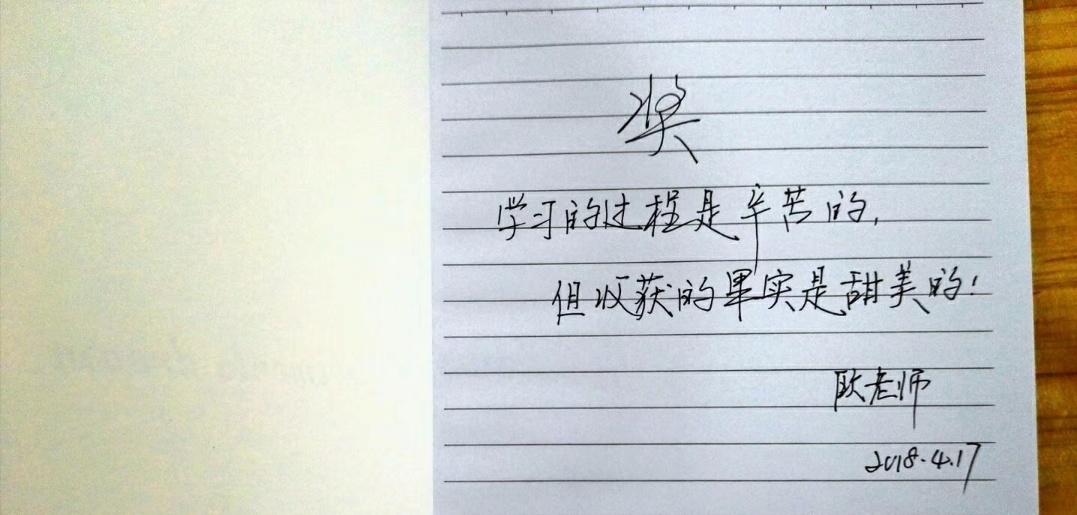 奖
学习的过程是辛苦的，
但收获的果实是甜美的！
耿老师
2018.4.17